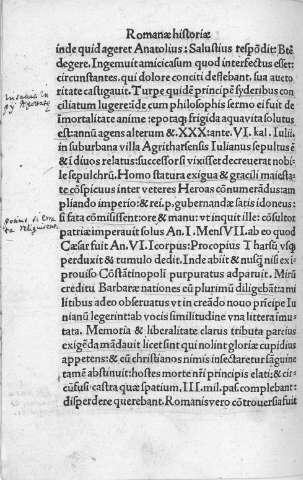 Romanæ historiæ
inde quid ageret Anatolius: Salustius respõdit: Btẽ
degere. Ingemuit amici casum quod interfectus esset:
circunstantes, qui dolore conciti deflebant, sua aucto
ritate castigauit. Turpe quidẽ principẽ syderibus con
ciliatum lugere: inde cum philosophis sermo ei fuit de
ĩmortalitate animæ: epotaq; frigida aqua vita solutus
est: annũ agens alterum & .XXX: ante. VI. kal. Iulii.
in suburbana villa
Iulianus sepultus
& ĩ diuos relatus: successori si vixisset decreuerat nobi:
le sepulchrũ. Homo statura exigua & gracili maiesta:
te cõspicuus inter veteres Heroas cõnumerãdus: am
pliando imperio: & rei. p. gubernandæ satis idoneus:
si fata cõmisissent: ore & manu: vt inquit ille: cõsultor
patriæ: imperauit solus An. I. Mens VII. ab eo quod
Cæsar fuit An. VI. corpus: Procopius Tharsũ vsq;
perduxit & tumulo dedit. Inde abiit & nusq̃ nisi ex i:
prouiso Cõstãtinopoli purpuratus adparuit. Mirũ
creditu Barbaræ nationes eũ plurimũ diligebãt: a mi
litibus adeo obseruatus vt in creãdo nouo prĩcipe Iu
nianũ legerint: ab vocis similitudine vna littera ĩmu:
tata. Memoria & liberalitate clarus tributa parcius
exigẽda mãdauit licet sunt qui nolint gloriæ cupidius
appetens: & cũ christianos nimis insectaretur sãguine
tamẽ abstinuit: hostes morte nr̃i principis elati: & cir:
cũfusi castra quæ spatium. III. mil. pas. complebant:
disperdere querebant. Romanis vero cõtrouersia fuit